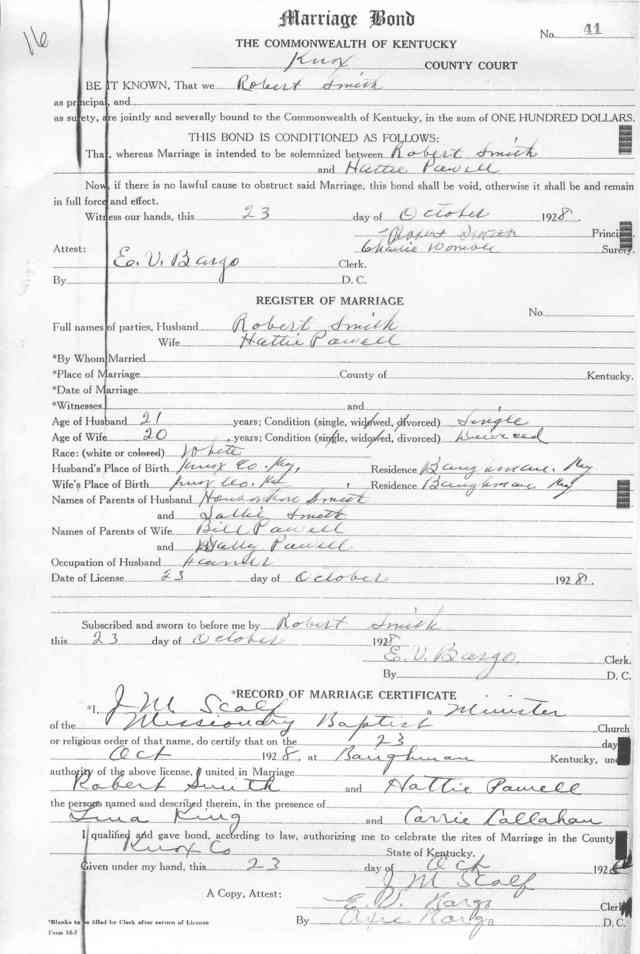 16
Marriage Bond
No. 41
THE COMMONWEALTH OF KENTUCKY
Knox COUNTY COURT
BE IT KNOWN, That we Robert Smith
as principal, and
as surety, are jointly and severally bound to the Commonwealth of Kentucky, in the sum of ONE HUNDRED DOLLARS.
THIS BOND IS CONDITIONED AS FOLLOWS:
That, whereas Marriage is intended to be solemnized between Robert Smith
and Hattie Powell
Now, if there is no lawful cause to obstruct said Marriage, this bond shall be void, otherwise it shall be and remain
in full force and effect.
Witness our hands, this 23 day of October 1928.
Robert Smith Princi
Charlie Surety.
Attest: E. V. Bargo Clerk.
By D. C.
REGISTER OF MARRIAGE
No.
Full names of parties, Husband Robert Smith
Wife Hattie Powell
*By Whom Married
*Place of Marriage County of Kentucky.
*Date of Marriage
*Witnesses and
Age of Husband 21 years; Condition (single, widowed, divorced) Single
Age of Wife 20, years; Condition (single, widowed, divorced) Divorced
Race: (white or colored) White
Husband's Place of Birth Knox Co. Ky, Residence Baughman. Ky
Wife's Place of Birth Knox Co. Ky, Residence Baughman Ky
Names of Parents of Husband Smith
and Sallie Smith
Names of Parents of Wife Bill Powell
and Powell
Occupation of Husband Farmer
Date of License 23 day of October 1928.
Subscribed and sworn to before me by Robert Smith
this 23 day of October 1928
E. V. Bargo. Clerk.
By D. C.
*RECORD OF MARRIAGE CERTIFICATE
*I, J M Scalf a Minister
of the Missionary Baptist Church
or religious order of that name, do certify that on the 23 day
Oct 1928, at Baughman Kentucky, und
authority of the above license, I united in Marriage
Robert Smith and Hattie Powell
the persons named and described therein, in the presence of
King and Carrie Callahan
I qualified and gave bond, according to law, authorizing me to celebrate the rites of Marriage in the County
Knox Co State of Kentucky.
Given under my hand, this 23 day of Oct 192
J M Scalf
A Copy, Attest: E. V. Bargo Clerk
By Bargo D. C.
*Blanks to be filled by Clerk after return of License